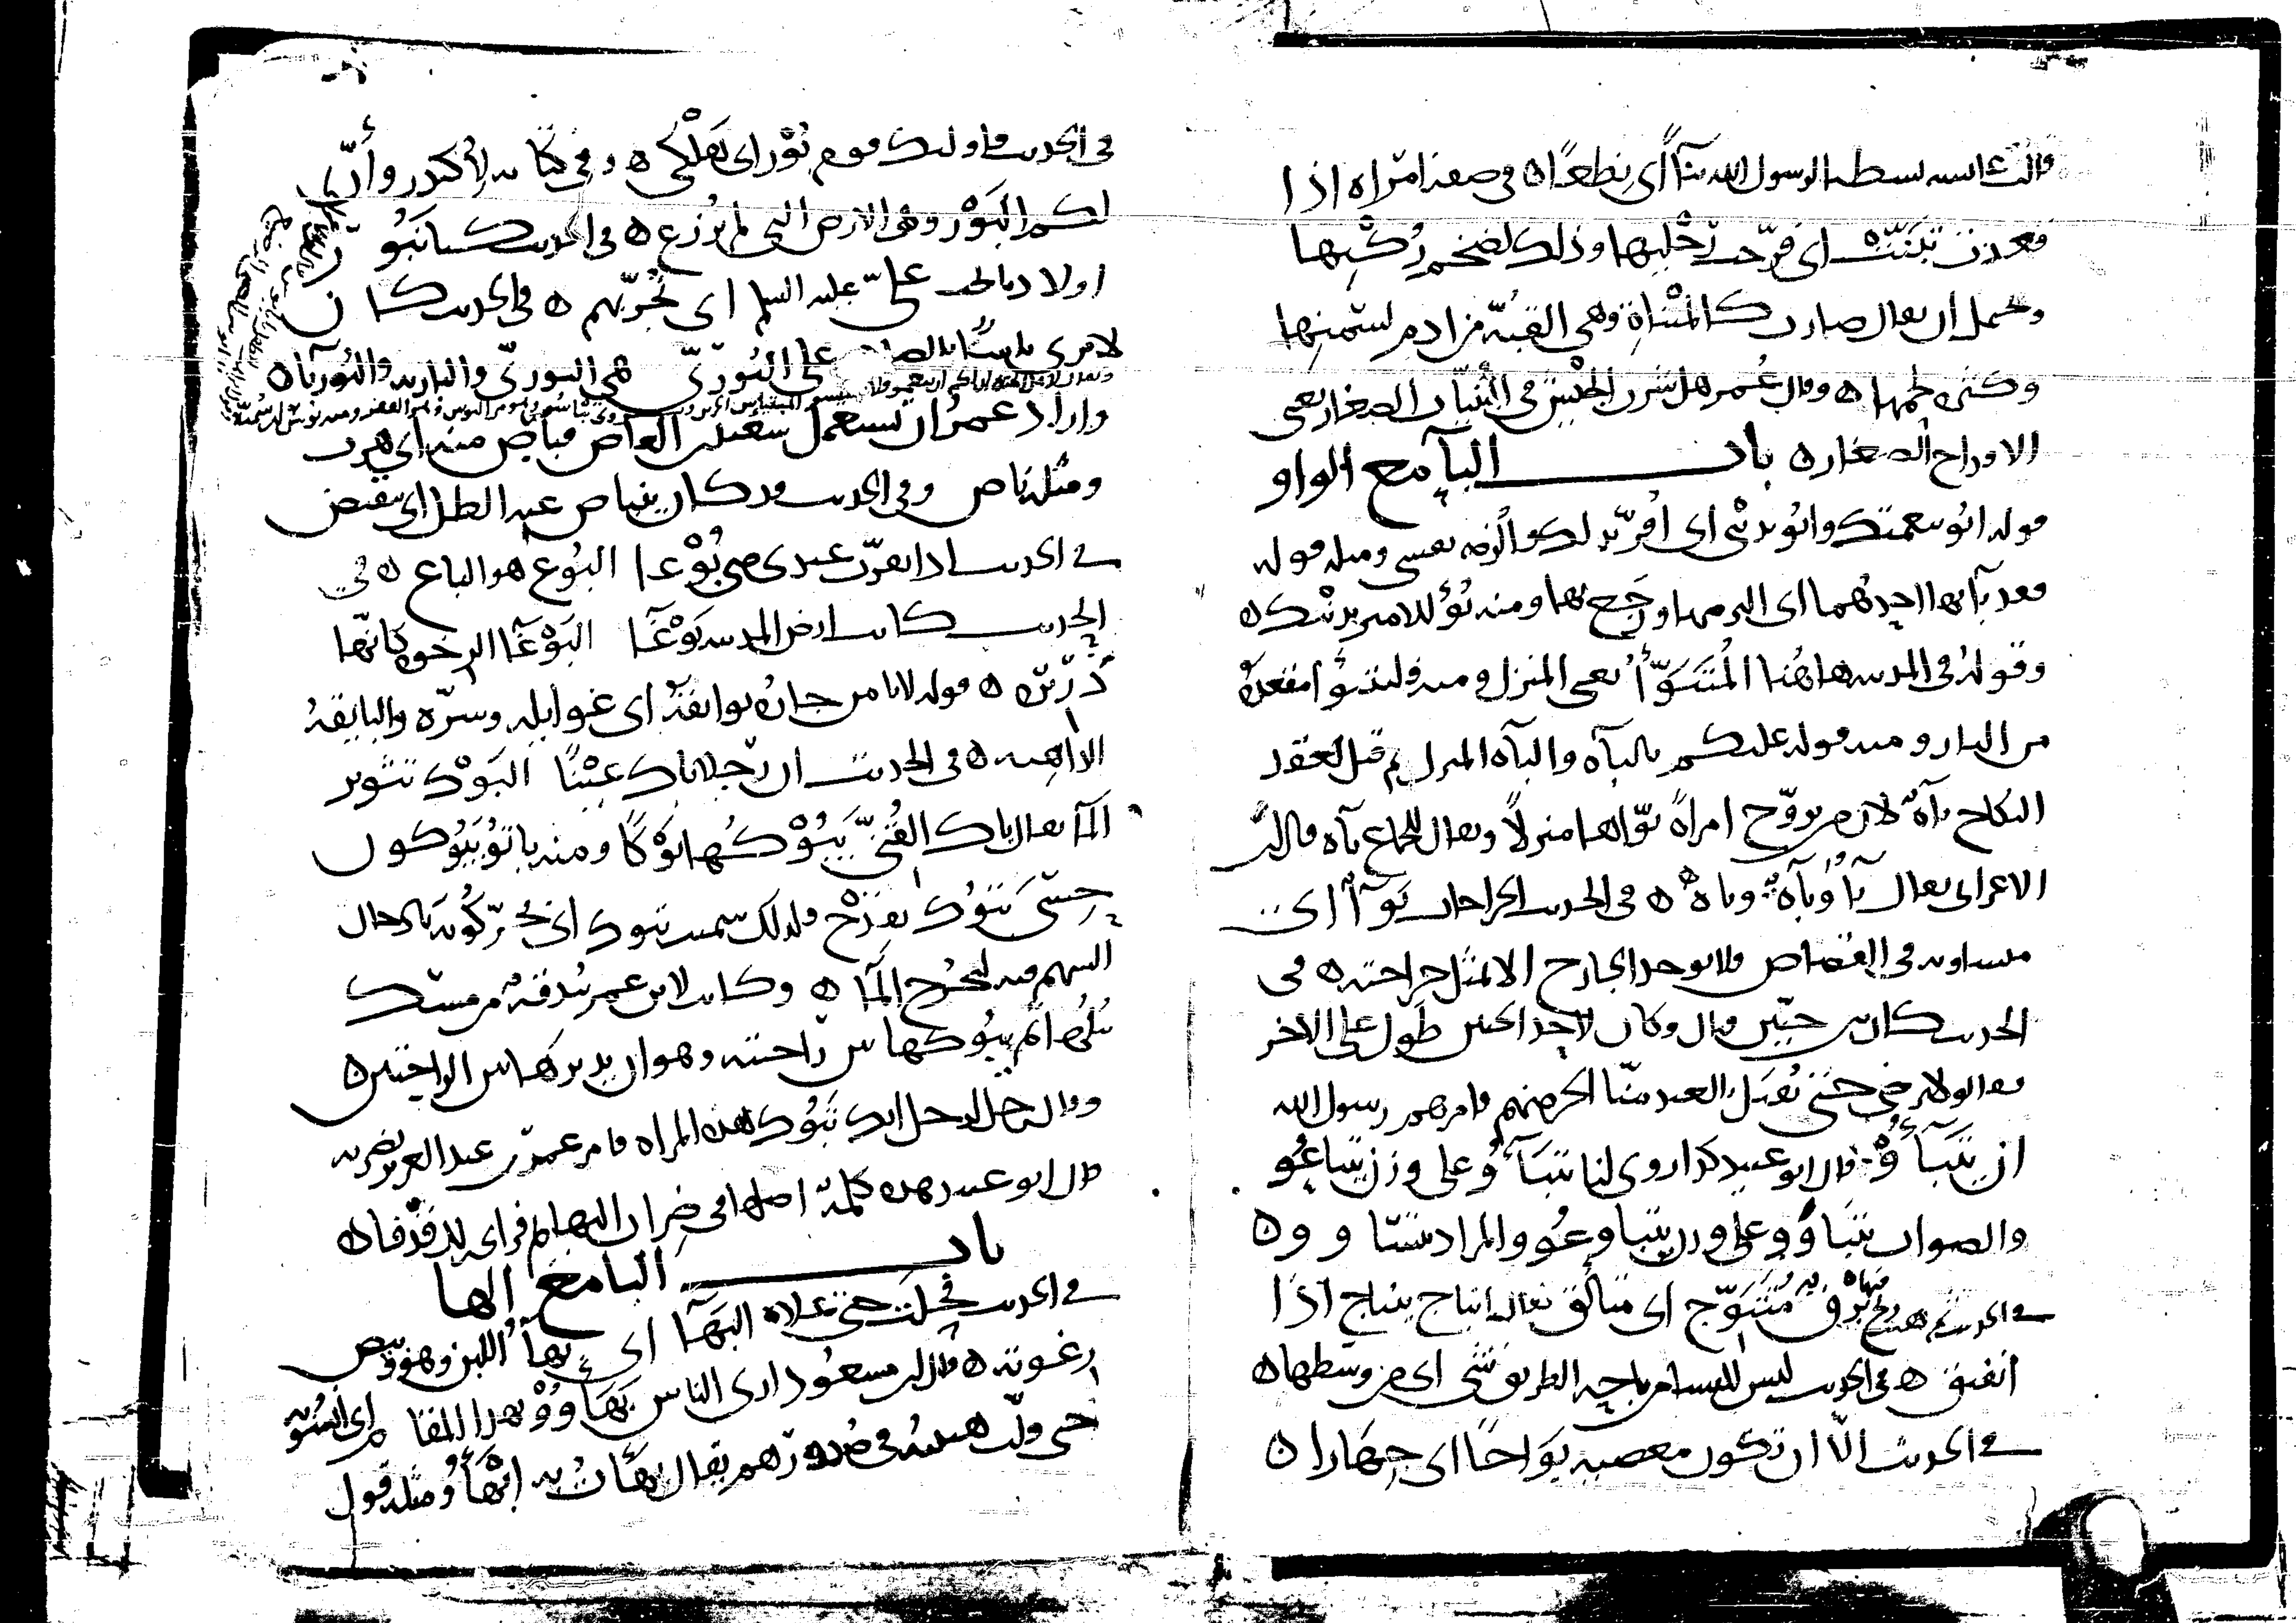 قالت عائشة بسطت لرسول الله بناً أي نطعاً ه في صفة امرأة اذا
قعدت تبنت اى فرجت رجليها وذلك لضخم ركبها
ويحتمل ان يقال صارت كالمبناة وهي القبة من ادم لسمنها
وكثرة لحمها ه وقال عمر هل شرب الجيش في البنيات الصغار يعني
الاقداح الصغار ه باب الباء مع الواو
قوله ابوء بنعمتك وابوء بذنبي اى اقر به لك والزمه نفسي ومثله قوله
فقد باء بها احدهما اى التزمها ورجع بها ومنه بؤ للامير بذنبك ه
وقوله في المدينة هاهنا المتبوأ يعني المنزل ومنه فليتبوأ مقعده
من النار ومنه قوله عليكم بالباه والباه المنزل ثم قيل لعقد
النكاح باه لان من يزوج امراة بوأها منزلا ويقال للجماع باه قال ابن
الاعرابي يقال باء وباءة وباه ه في الحديث الجراحات بواء اى
متساوية في القصاص فلا يوخذ الجارح الا بمثل جراحته ه في
الحديث كان بين حيين قتال وكان لاحد الحيين طول على الاخر
فقالوا لا نرضى حتى نقتل بالعبد منا الحر منهم فامرهم رسول الله
ان يتباءوا قال ابو عبيد كذا روى لنا يتباءوا على وزن يتباعوا
والصواب يتباوءوا على وزن يتباوعوا والمراد يتساووا ه
في الحديث ثم هبت ريح فيها برق متبوج اى متألق يقال انباج ينباج اذا
انفتق ه في الحديث ليس للنساء من باحة الطريق شي اى من وسطها ه
في الحديث الا ان تكون معصية بواحا اى جهارا ه
في الحديث فاولئك قوم بور اى هلكى ه وفي كتابه لأكيدر وأن
لكم البور وهي الارض التي لم تزرع ه في الحديث كنا نبور
اولادنا بحب علي عليه السلم اى نجربهم ه في الحديث كان
لا يرى باسا بالصلاة على البوري هي البوري والبارية والبورياه
واراد عمر ان يستعمل سعيد بن العاص فباص منه اى هرب
ومثله ناص وفي الحديث قد كان ينباص عنه الظل اى ينقبض
في الحديث اذا تقرب عبدي مني بوعا البوع هو الباع ه في
الحديث كانت ارض المدينة بوغاء البوغاء الرخوة كانها
ذريرة ه قوله لا يأمن جاره بوائقه اى غوايله وشره والبايقة
الداهية ه في الحديث ان رجلا باك عينا البوك تثوير
الماء يقال باك القني يبوكها بوكا ومنه باتوا يبوكون
حسي تبوك بقدح فلذلك سميت تبوك اى يحركونه بادخال
السهم فيه ليخرج الماء ه وكانت لابن عمر بندقة من مسك
يبلها ثم يبوكها بين راحتيه وهو ان يديرها بين الراحتين ه
وقال رجل لرجل انك تبوك هذه المراة فامر عمر بن عبد العزيز بضربه
قال ابو عبيد هذه كلمة اصلها في ضراب البهايم فراى ذلك قذفا ه
باب الباء مع الها
في الحديث فحلب حتى علاه البهاء اى بهاء اللبن وهو وبيص
رغوته ه قال ابن مسعود ارى الناس بهأوا بهذا المقام اى انسوا به
حتى قلت هيبته في صدورهم يقال بهأت به ابهأ ومثله قول